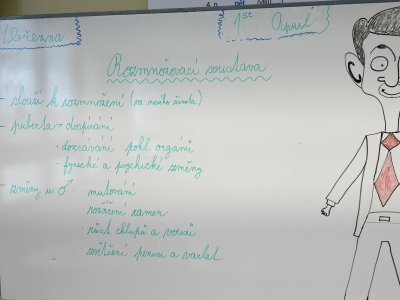 4 n pět
Března
1st April
Rozmnožovací soustava
- slouží k rozmnožení (vz. nového života)
- puberta = dospívání
· dozrávání pohl. orgánů
· fyzické a psychické změny
- změny u ♂: · mutování
· rozšíření ramen
· růst chlupů a vousů
· zvětšení penisu a varlat